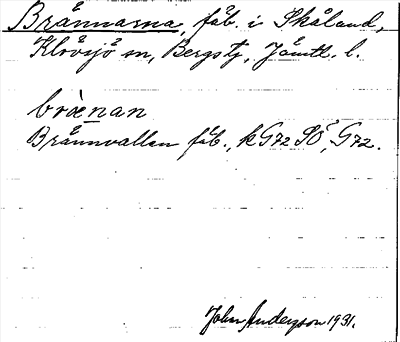 Brännarna, fäb. i Skåland,
Klövsjö sn, Bergs tg, Jämtl. l.
bræ̀nan
Brännvallen fäb., k G72 SO, G72.
John Andersson 1931.